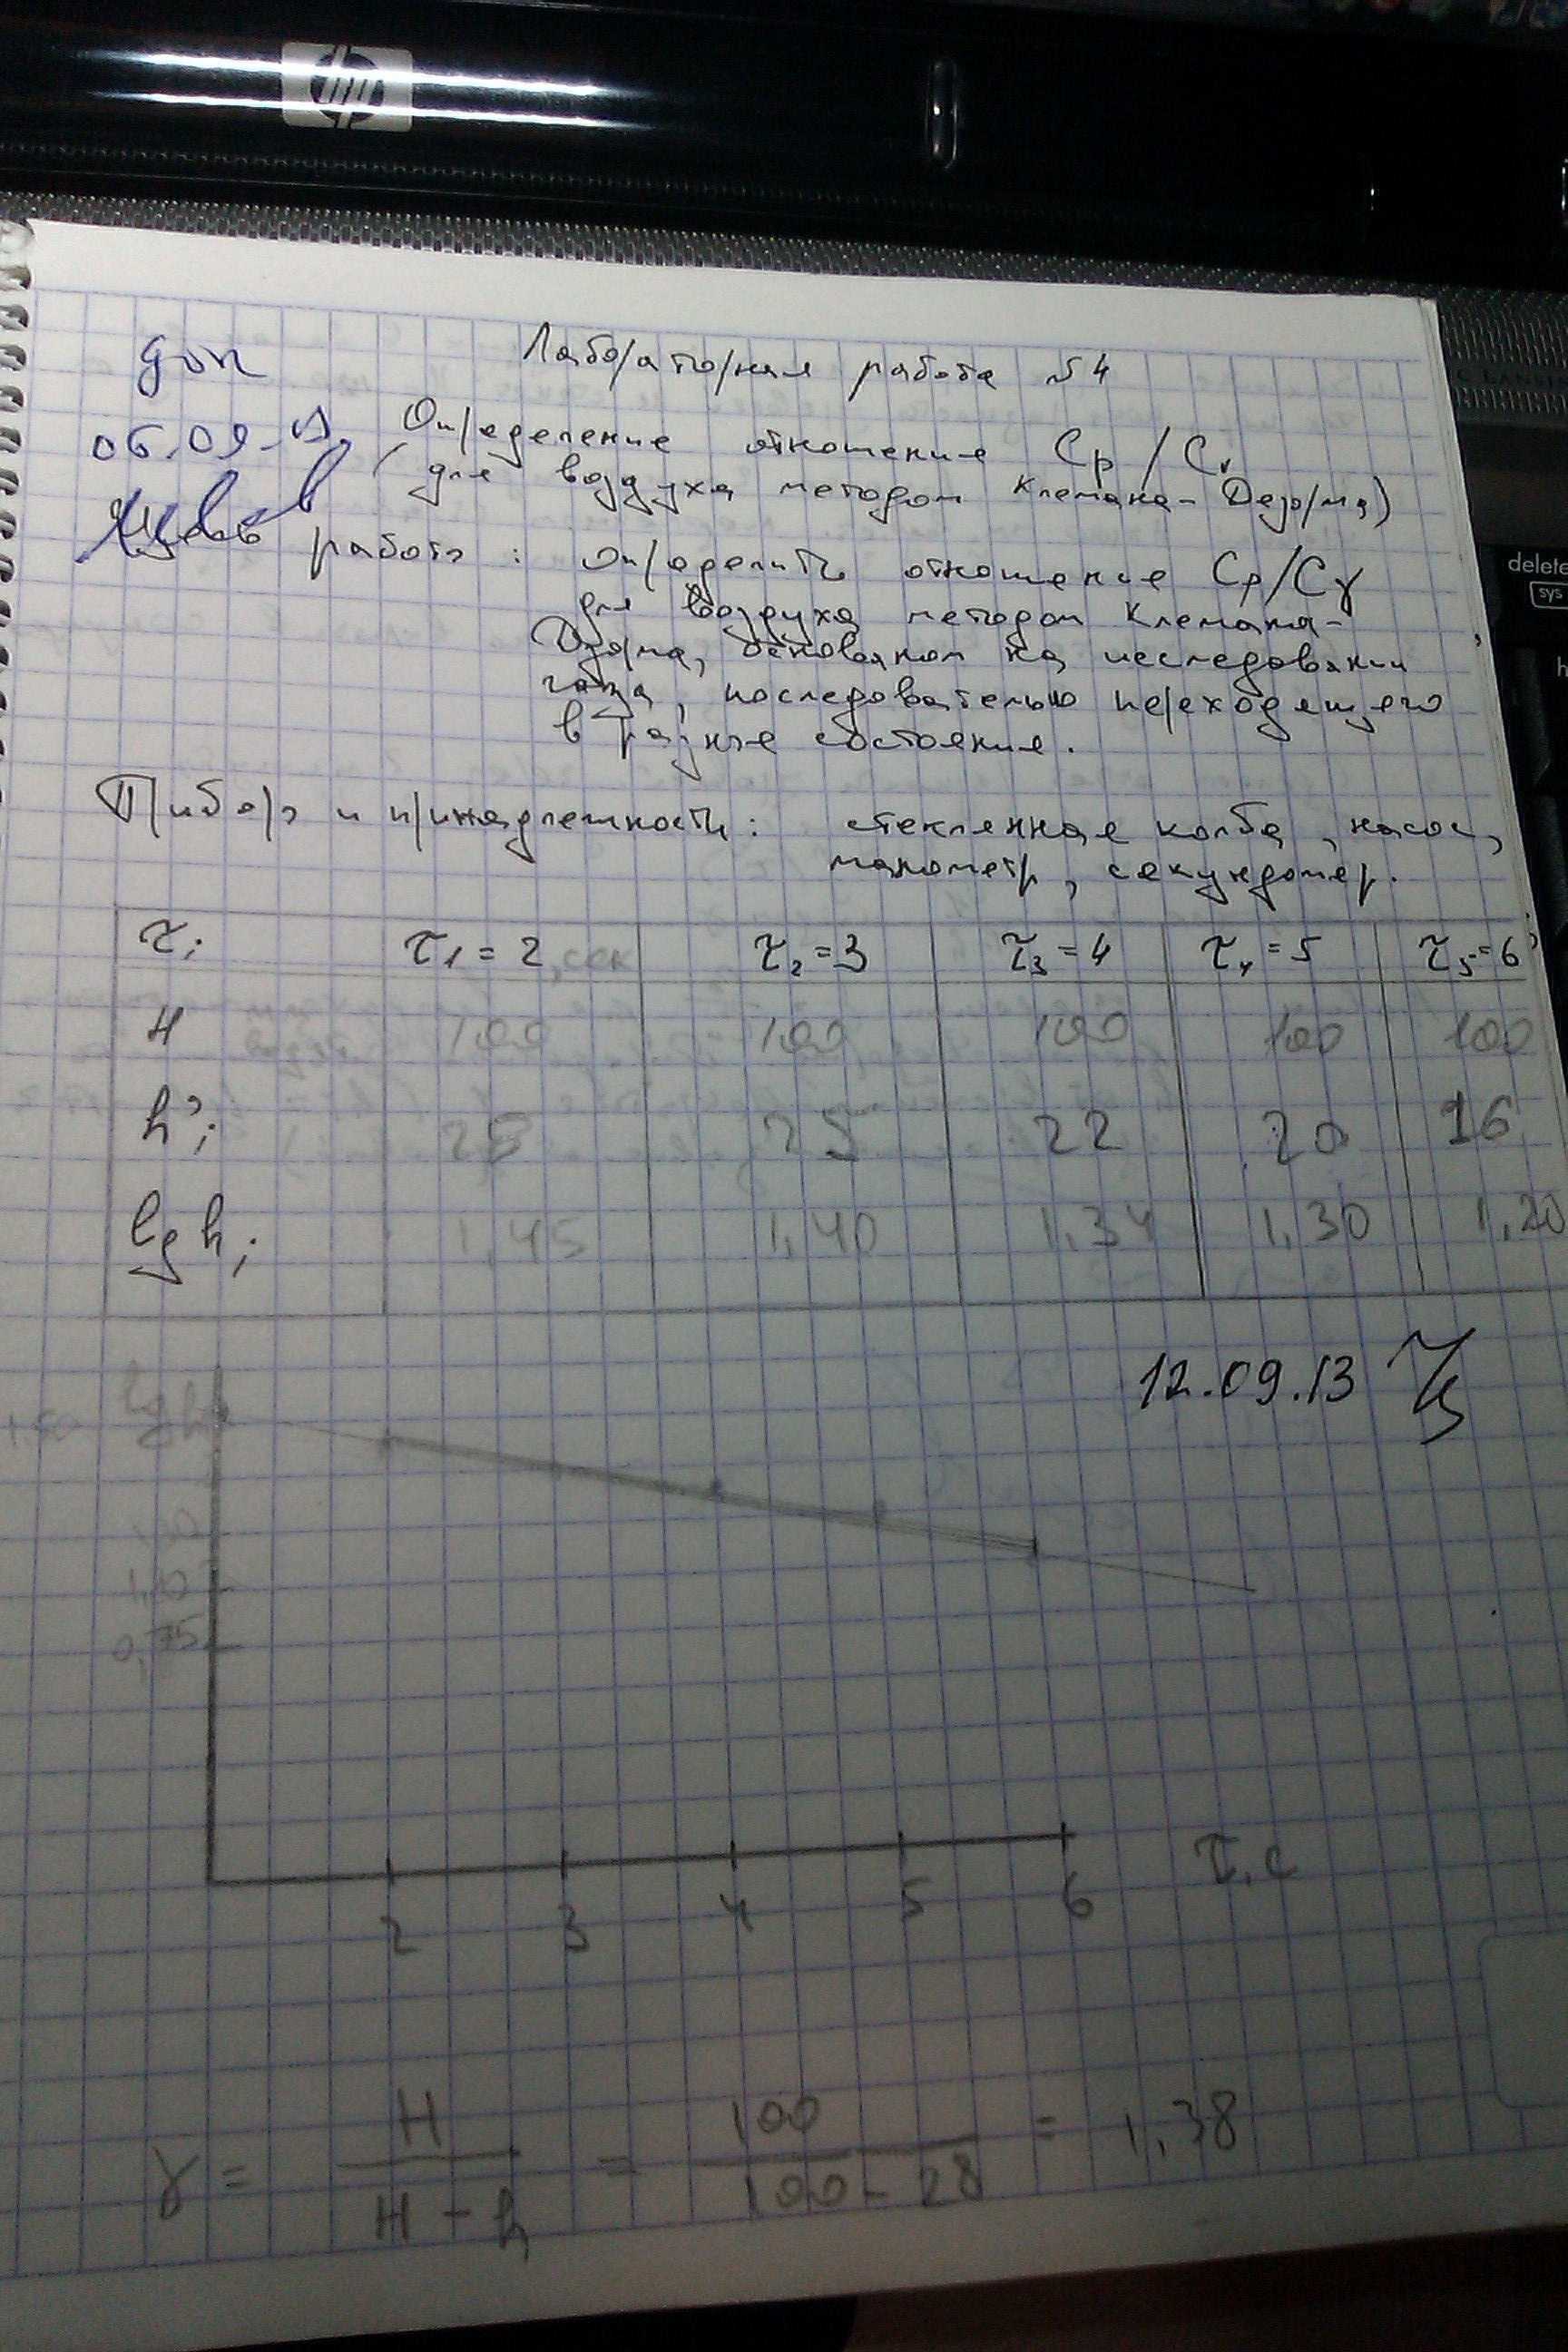 hp
доп
Лабораторная работа №4
06.09.13
Определение отношения Cp/Cv
(для воздуха методом Клемана-Дезорма)
работы: определить отношение Cp/Cγ
для воздуха методом Клемана-
Дзорма, основанном на исследовании
газа, последовательно переходящего
в разные состояния.
Приборы и принадлежности: стеклянная колба, насос,
манометр, секундомер.
τi τ1=2,сек τ2=3 τ3=4 τ4=5 τ5=6
H 100 100 100 100 100
h'i 28 25 22 20 16
lg hi 1,45 1,40 1,34 1,30 1,20
12.09.13
lg h
1,50
0,75
2 3 4 5 6 τ, с
γ = H / (H - h) = 100 / (100 - 28) = 1,38
delete
sys
h